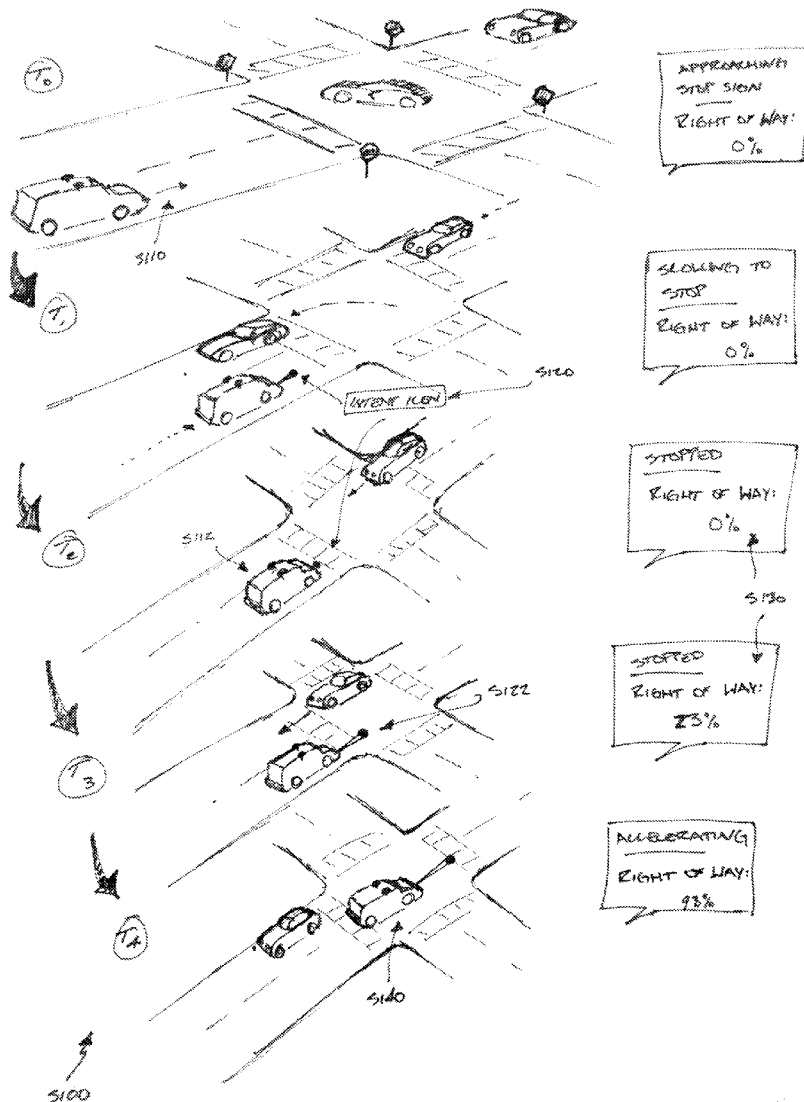 T0
APPROACHING
STOP SIGN
RIGHT OF WAY:
0%
S110
T1
SLOWING TO
STOP
RIGHT OF WAY:
0%
INTENT ICON
S120
STOPPED
RIGHT OF WAY:
0%
T2
S112
S130
STOPPED
RIGHT OF WAY:
23%
S122
T3
ACCELERATING
RIGHT OF WAY:
93%
T4
S140
S100